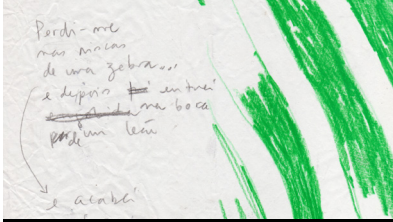 Perdi-me
nas riscas
de uma zebra...
e depois entrei
na boca
de um leão
e acabei